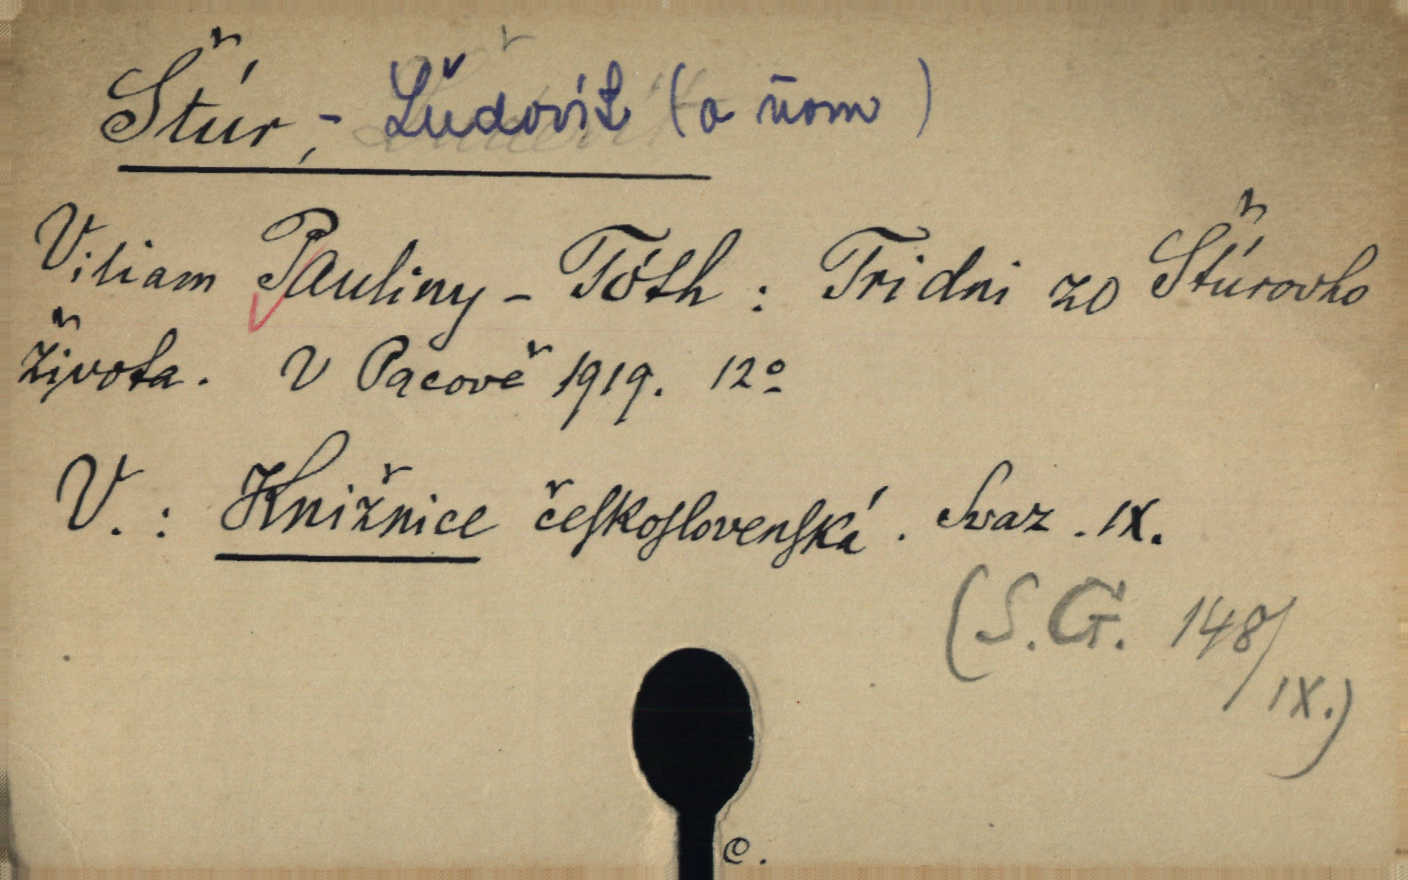 Štúr, - Ľudovít (o ňom)
Viliam Pauliny - Tóth : Tri dni zo Štúrovho
života. V Pacově 1919. 12º
V. : Knižnice československá. Svaz. IX.
(S.G. 148/IX.)
C.